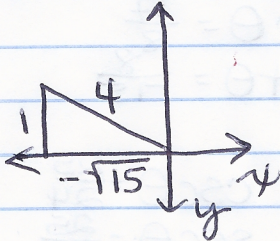 4
1
-√15
x
y